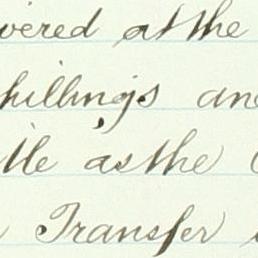 vered at the
hillings and
tle as the
Transfer